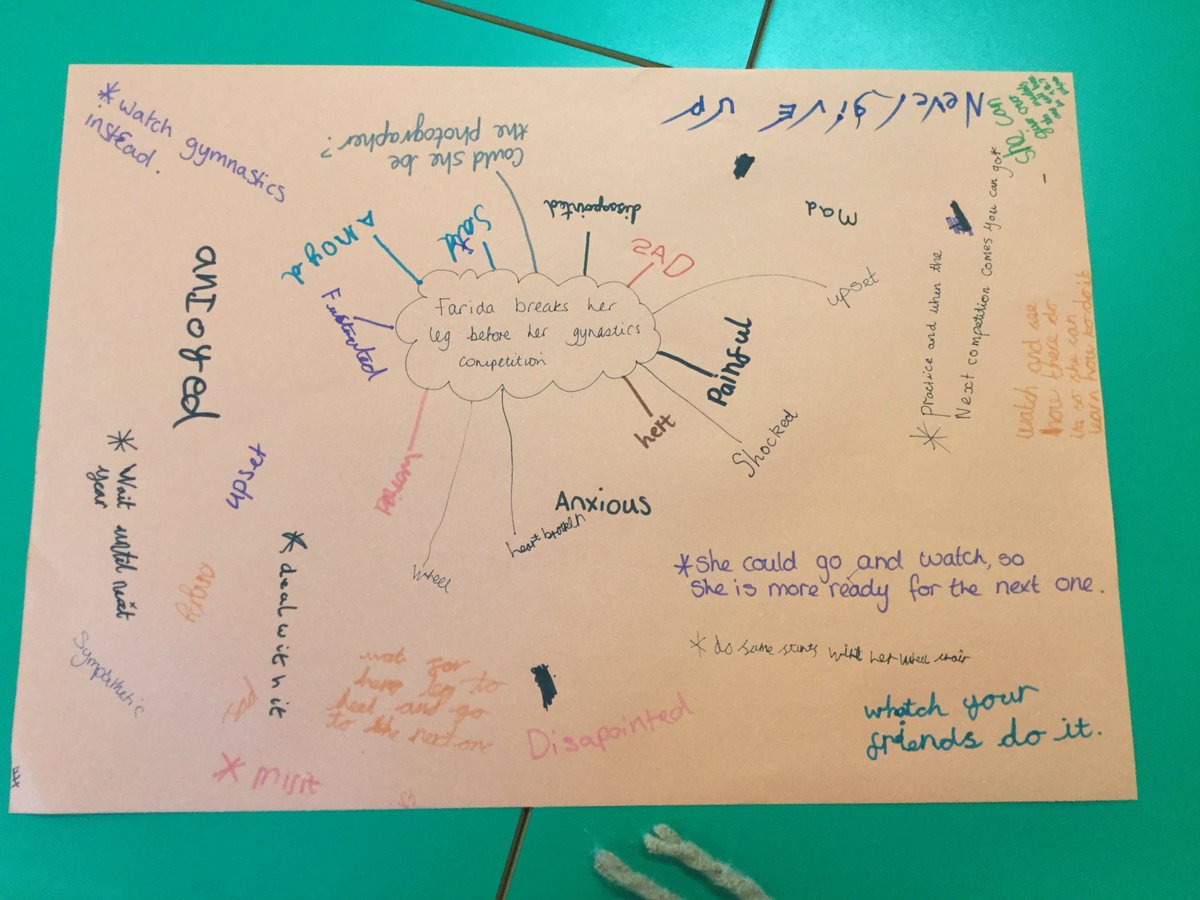 Farida breaks her
leg before her gynastics
competition
* watch gymnastics
instead.
Could she be
the photographer?
Never give up
She can
Anoyd
Sad
disapointed
SAD
Mad
upset
Painful
hert
Shocked
Anxious
heart broken
wheel
Fustrated
anIoyed
upset
* Wait until next
year
* deal with it
Sympathetic
* Practice and when the
Next competition comes you can go*
watch and see
how there do
it so she can
learn how to do it
*She could go and watch, so
she is more ready for the next one.
* do some stunts with her weel chair
whatch your
friends do it.
wat for
here leg to
heal and go
to the next one
Disapointed
* Miss it